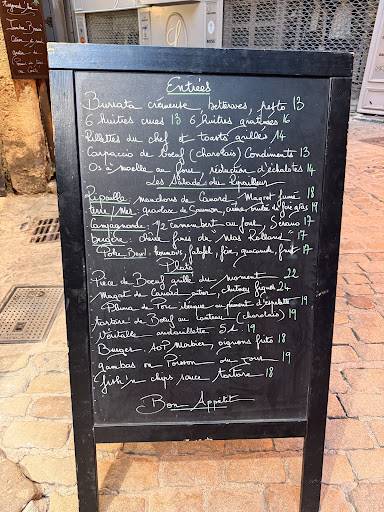 Entrées
Burrata crémeuse betteraves, pesto 13
6 huitres crues 13 6 huitres gratinées 16
Rillettes du chef et toasts grillés 14
Carpaccio de bœuf (charolais) Condiments 13
Os à moelle au four, réduction d'échalotes 14
Les Salades du Ripailleur
Ripaille: manchons de Canard, Magret fumé 18
Terre/Mer: gravlax de Saumon, foie gras 19
Campagnarde: 1/2 camembert au four, Serano 17
Bergère: chèvre frais du Mas Rolland 17
Poke Bowl: houmous, falafel, fèves, guacamole, fruit 17
Plats
Pièce de Boeuf grillé du moment 22
Magret de Canard entier, figue 24
Pluma de Porc ibérique au piment d'espelette 19
tartare de Bœuf au couteau (charolais) 19
Véritable andouillette 5A 19
Burger AOP Morbier, oignons frits 18
gambas ou Poisson du jour 19
fish'n chips sauce tartare 18
Bon Appétit